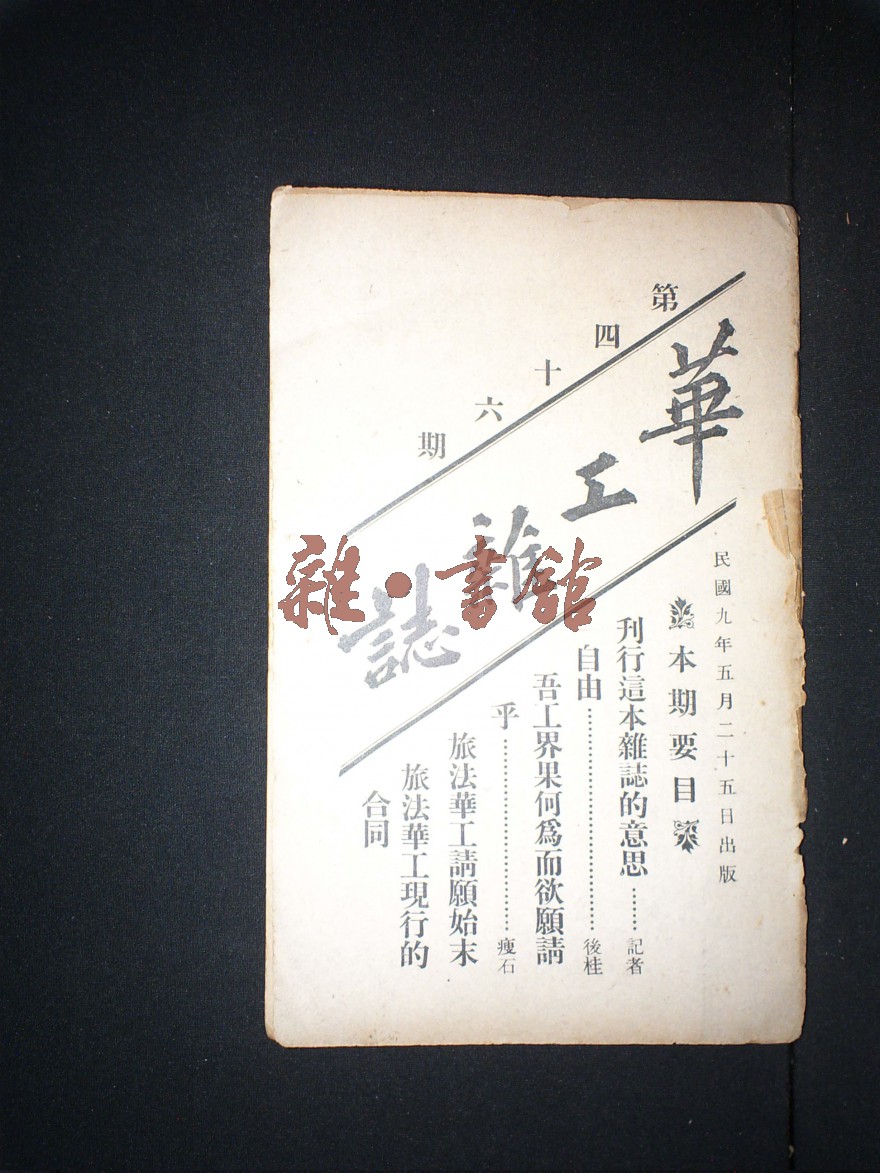 華工雜誌
第四十六期
民國九年五月二十五日出版
本期要目
刊行這本雜誌的意思………記者
自由…………………………後桂
吾工界果何爲而欲願請
乎…………………………瘦石
旅法華工請願始末
旅法華工現行的
合同
雜·書館